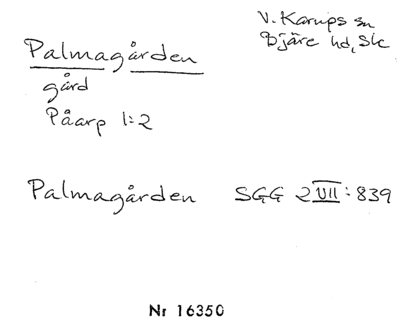 V. Karups sn
Bjäre hd, Sk
Palmagården
gård
Påarp 1:2
Palmagården SGG 2 VII : 839
Nr 16350